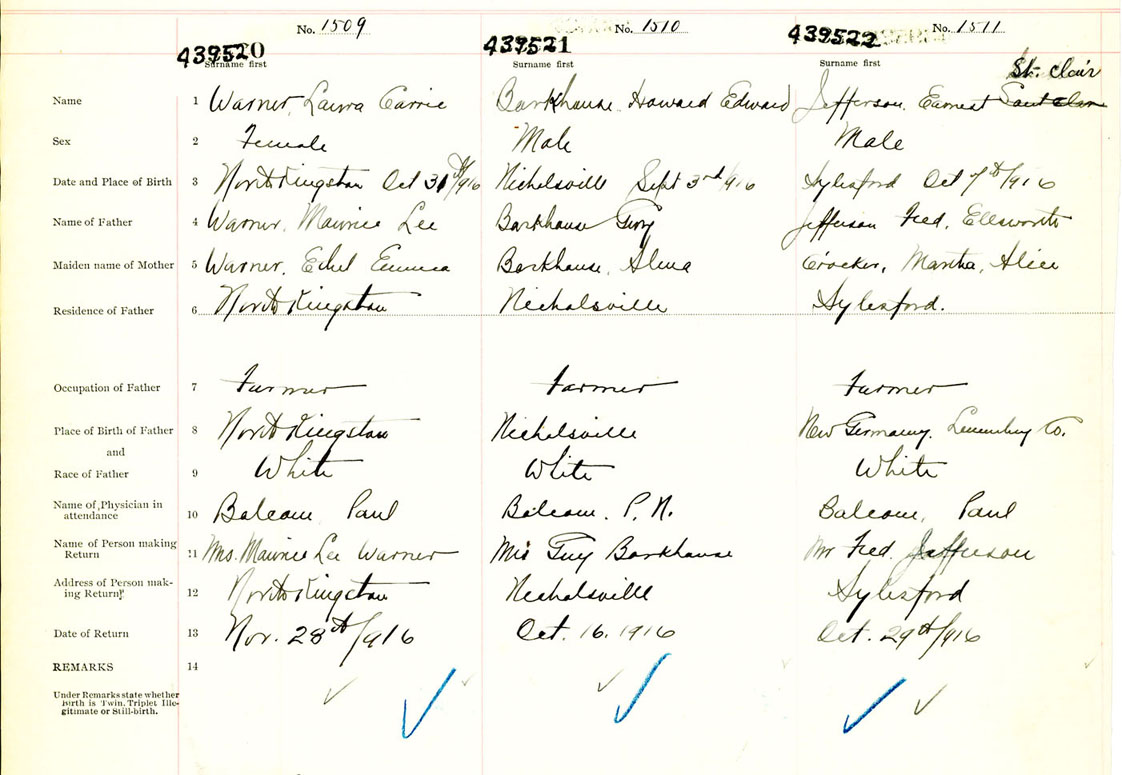 No. 1509 No. 1510 No. 1511
439520 439521 439522
Surname first Surname first Surname first
St. Clair
Name 1 Warner, Laura Carrie Barkhouse Howard Edward Jefferson, Earnest Saint Clare
Sex 2 Female Male Male
Date and Place of Birth 3 North Kingston Oct 31st/916 Nicholsville Sept 3rd/916 Aylesford Oct 7th/916
Name of Father 4 Warner, Maurice Lee Barkhouse Guy Jefferson Fred, Ellsworth
Maiden name of Mother 5 Warner, Ethel Emma Barkhouse, Alma Crocker, Martha, Alice
Residence of Father 6 North Kingston Nicholsville Aylesford.
Occupation of Father 7 Farmer Farmer Farmer
Place of Birth of Father 8 North Kingston Nicholsville New Germany, Lunenburg Co.
and
Race of Father 9 White White White
Name of Physician in
attendance 10 Balcom, Paul Balcom, P. N. Balcom, Paul
Name of Person making
Return 11 Mrs. Maurice Lee Warner Mrs Guy Barkhouse Mr Fred. Jefferson
Address of Person mak-
ing Return 12 North Kingston Nicholsville Aylesford
Date of Return 13 Nov. 28th/916 Oct. 16, 1916 Oct. 29th/916
REMARKS 14
Under Remarks state whether
birth is Twin. Triplet Ille-
gitimate or Still-birth.